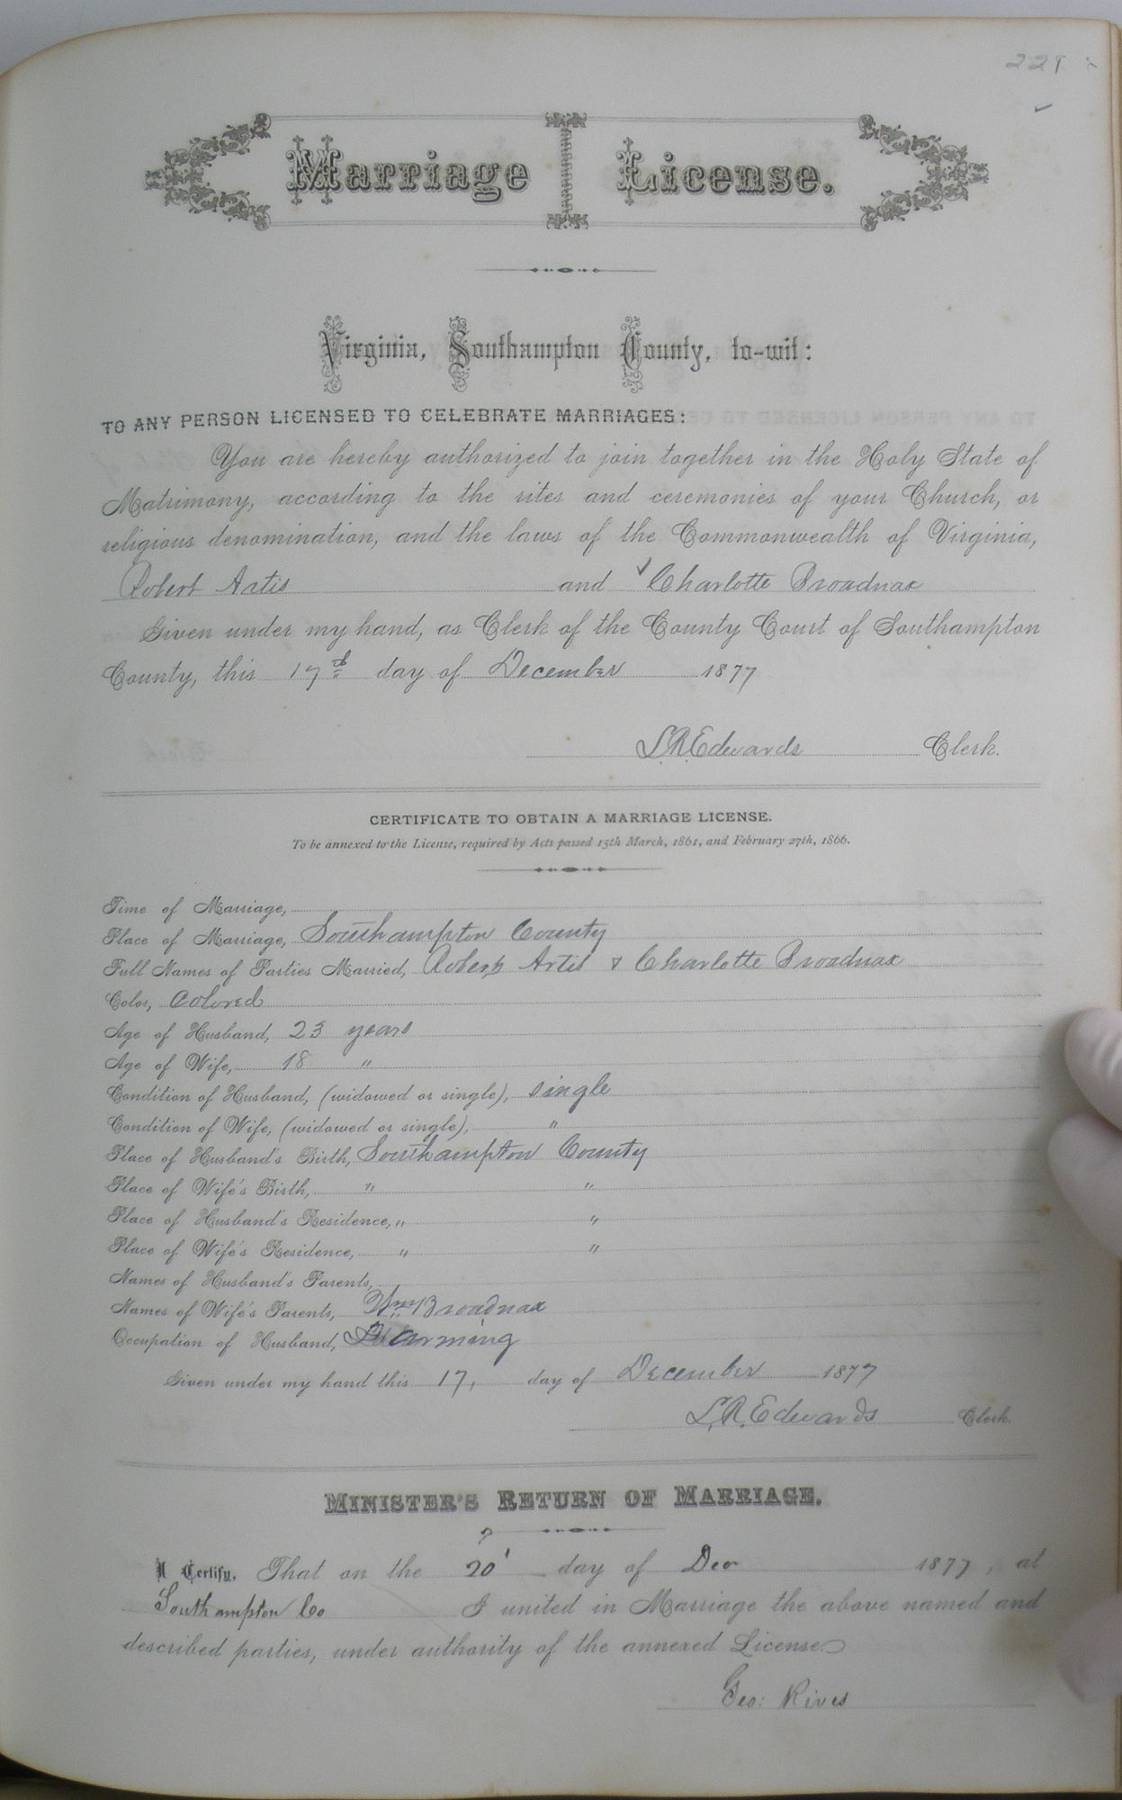 Marriage License.
Virginia, Southampton County, to-wit:
TO ANY PERSON LICENSED TO CELEBRATE MARRIAGES:
You are hereby authorized to join together in the Holy State of
Matrimony, according to the rites and ceremonies of your Church, or
religious denomination, and the laws of the Commonwealth of Virginia,
Robert Artis and Charlotte Broadnax
Given under my hand, as Clerk of the County Court of Southampton
County, this 17 day of December 1877
L.R. Edwards Clerk.
CERTIFICATE TO OBTAIN A MARRIAGE LICENSE.
To be annexed to the License, required by Acts passed 15th March, 1861, and February 27th, 1866.
Time of Marriage,
Place of Marriage, Southampton County
Full Names of Parties Married, Robert Artis & Charlotte Broadnax
Color, Colored
Age of Husband, 23 years
Age of Wife, 18 "
Condition of Husband, (widowed or single), single
Condition of Wife, (widowed or single), "
Place of Husband's Birth, Southampton County
Place of Wife's Birth, " "
Place of Husband's Residence, " "
Place of Wife's Residence, " "
Names of Husband's Parents,
Names of Wife's Parents, Wm Broadnax
Occupation of Husband, Farming
Given under my hand this 17, day of December 1877
L.R. Edwards Clerk.
MINISTER'S RETURN OF MARRIAGE.
I Certify, That on the 20 day of Dec 1877, at
Southampton Co I united in Marriage the above named and
described parties, under authority of the annexed License.
Geo: Rives